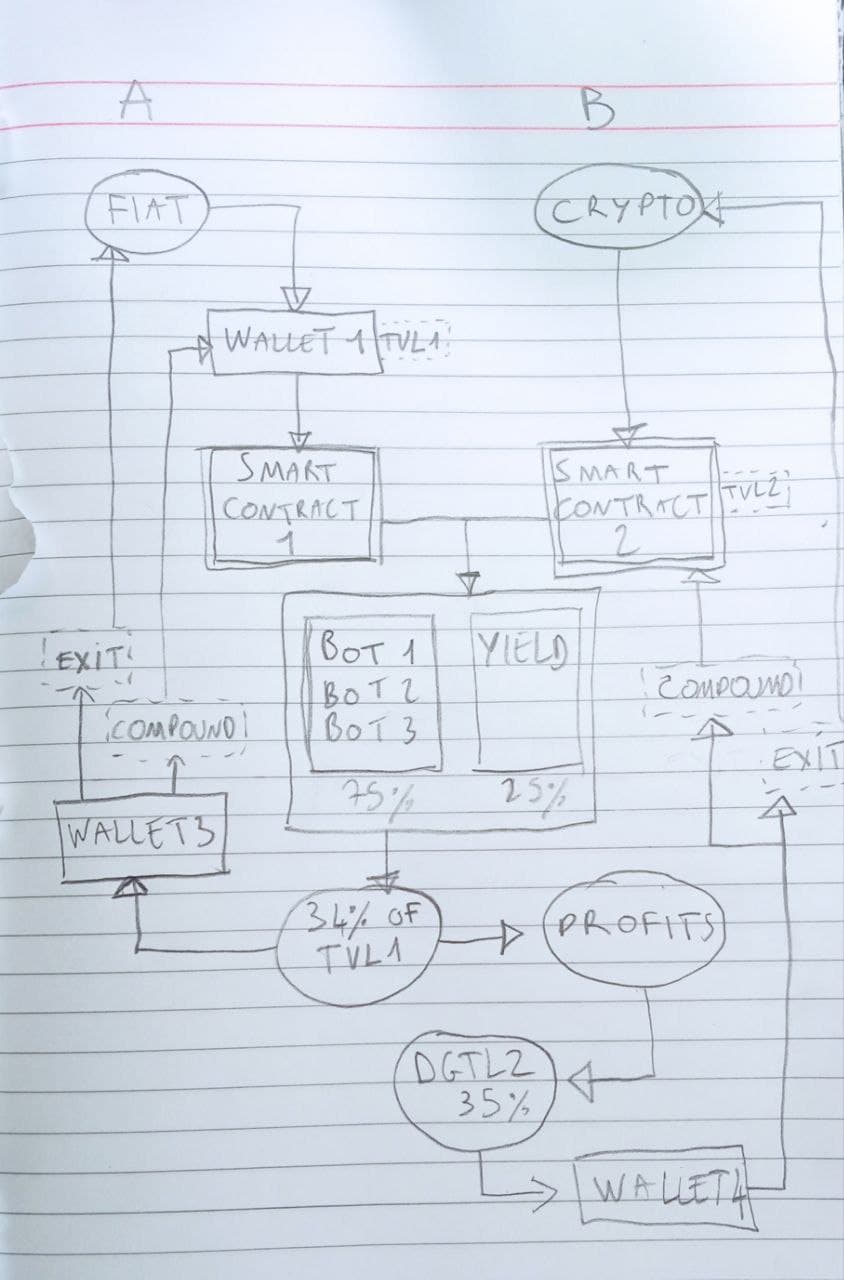 A
B
FIAT
CRYPTO
WALLET 1
TVL1
SMART
CONTRACT
1
SMART
CONTRACT
2
TVL2
BOT 1
BOT 2
BOT 3
YIELD
75%
25%
EXIT
COMPOUND
COMPOUND
EXIT
WALLET3
34% OF
TVL1
PROFITS
DGTL2
35%
WALLET4